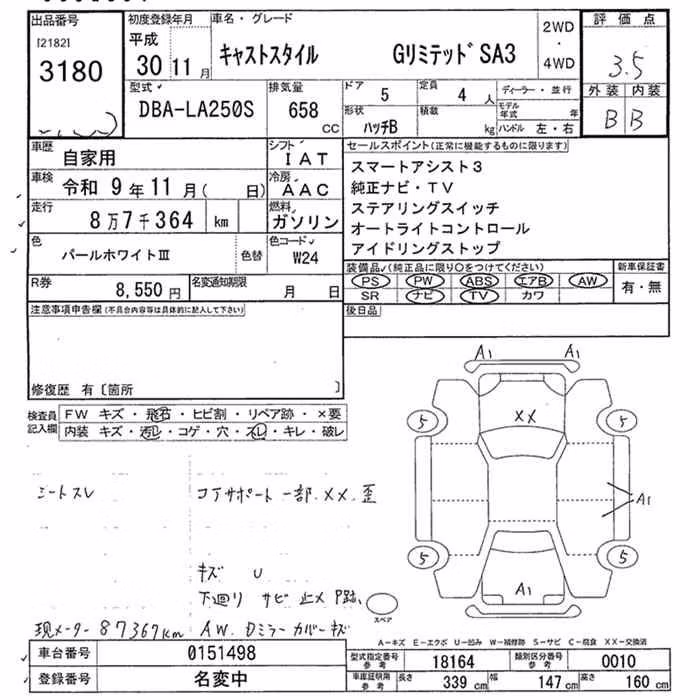 出品番号
[2182]
3180
初度登録年月
平成
30 11 月
車名・グレード
キャストスタイル GリミテッドSA3
2WD
・
4WD
評価点
3.5
外装 内装
B B
型式
DBA-LA250S
排気量
658
cc
ドア 5
定員 4 人
ディーラー・並行
形状
ハッチB
積載
kg
モデル年式 年
ハンドル 左・右
車歴
自家用
シフト
IAT
車検
令和 9 年 11 月 ( 日)
冷房
AAC
走行
8 万 7 千 364 km
燃料
ガソリン
色
パールホワイトⅢ
色替
色コード
W24
R券
8,550 円
名変通知期限
月 日
セールスポイント(正常に機能するものに限ります)
スマートアシスト3
純正ナビ・TV
ステアリングスイッチ
オートライトコントロール
アイドリングストップ
装備品(純正品に限り○をつけてください)
新車保証書
PS PW ABS エアB AW
有・無
SR ナビ TV カワ
後日品
注意事項申告欄(不具合内容等は具体的に記入して下さい)
修復歴 有〔箇所 〕
検査員
記入欄
FW キズ・飛石・ヒビ割・リペア跡・×要
内装 キズ・汚レ・コゲ・穴・スレ・キレ・破レ
シートスレ
コアサポート一部 XX 歪
キズ U
下廻り サビ
現メーター 87367km
AW、Dミラーカバーキズ
A1 A1
XX
5 5
A1
5 5
A1
スペア
A－キズ E－エクボ U－凹み W－補修跡 S－サビ C－腐食 XX－交換済
車台番号
0151498
登録番号
名変中
型式指定番号
参考
18164
類別区分番号
参考
0010
車庫証明用
参考
長さ 339 cm
幅 147 cm
高さ 160 cm